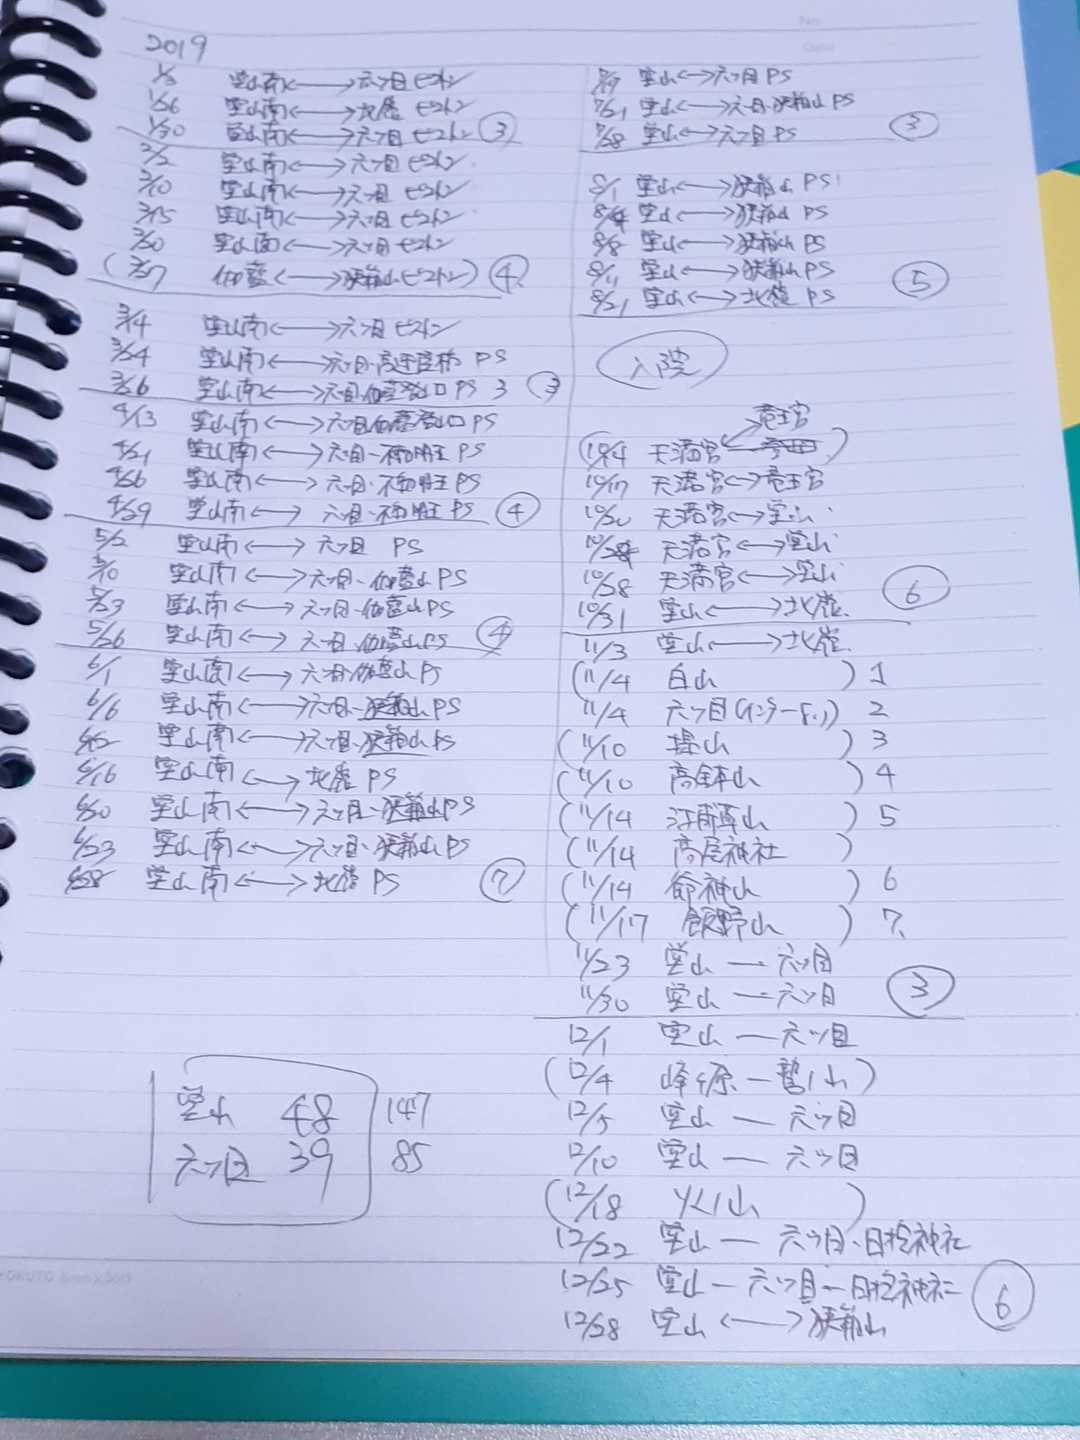 2019
1/3 堂山南←→六ツ目ピストン
1/26 堂山南←→北麓ピストン
1/30 堂山南←→六ツ目ピストン ③
2/2 堂山南←→六ツ目ピストン
2/10 堂山南←→六ツ目ピストン
2/15 堂山南←→六ツ目ピストン
2/20 堂山南←→六ツ目ピストン
(2/27 伽藍←→狭箱山ピストン) ④
3/4 堂山南←→六ツ目ピストン
3/24 堂山南←→六ツ目・高速 PS
3/26 堂山南←→六ツ目伽藍登山口 PS 3 ③
4/13 堂山南←→六ツ目伽藍登山口 PS
4/21 堂山南←→六ツ目・不動明王 PS
4/26 堂山南←→六ツ目・不動明王 PS
4/29 堂山南←→六ツ目・不動明王 PS ④
5/2 堂山南←→六ツ目 PS
5/10 堂山南←→六ツ目・伽藍山 PS
5/23 堂山南←→六ツ目・伽藍山 PS
5/26 堂山南←→六ツ目・伽藍山 PS ④
6/1 堂山南←→六ツ目・伽藍山 PS
6/6 堂山南←→六ツ目・狭箱山 PS
6/12 堂山南←→六ツ目・狭箱山 PS
6/16 堂山南←→北麓 PS
6/20 堂山南←→六ツ目・狭箱山 PS
6/23 堂山南←→六ツ目・狭箱山 PS
6/28 堂山南←→北麓 PS ⑦
堂山 48 147
六ツ目 39 85
堂山←→六ツ目 PS
7/21 堂山←→六ツ目・狭箱山 PS
7/28 堂山←→六ツ目 PS ③
8/1 堂山←→狭箱山 PS
8/4 堂山←→狭箱山 PS
8/8 堂山←→狭箱山 PS
8/11 堂山←→狭箱山 PS
8/21 堂山←→北麓 PS ⑤
入院
竜王宮
(10/4 天満宮 )
10/17 天満宮←→竜王宮
10/20 天満宮←→堂山
10/24 天満宮←→堂山
10/28 天満宮←→堂山 ⑥
10/31 堂山←→北麓
11/3 堂山←→北麓
(11/4 白山 ) 1
11/4 六ツ目(インターナ) 2
(11/10 堤山 ) 3
(11/10 高鉢山 ) 4
(11/14 山 ) 5
(11/14 高尾神社 )
(11/14 山 ) 6
(11/17 飯野山 ) 7
11/23 堂山 ― 六ツ目
11/30 堂山 ― 六ツ目 ③
12/1 堂山 ― 六ツ目
(12/4 峰 ― 山)
12/5 堂山 ― 六ツ目
12/10 堂山 ― 六ツ目
(12/18 山 )
12/22 堂山 ― 六ツ目・日 神社
12/25 堂山 ― 六ツ目 ― 日 神社 ⑥
12/28 堂山←→狭箱山